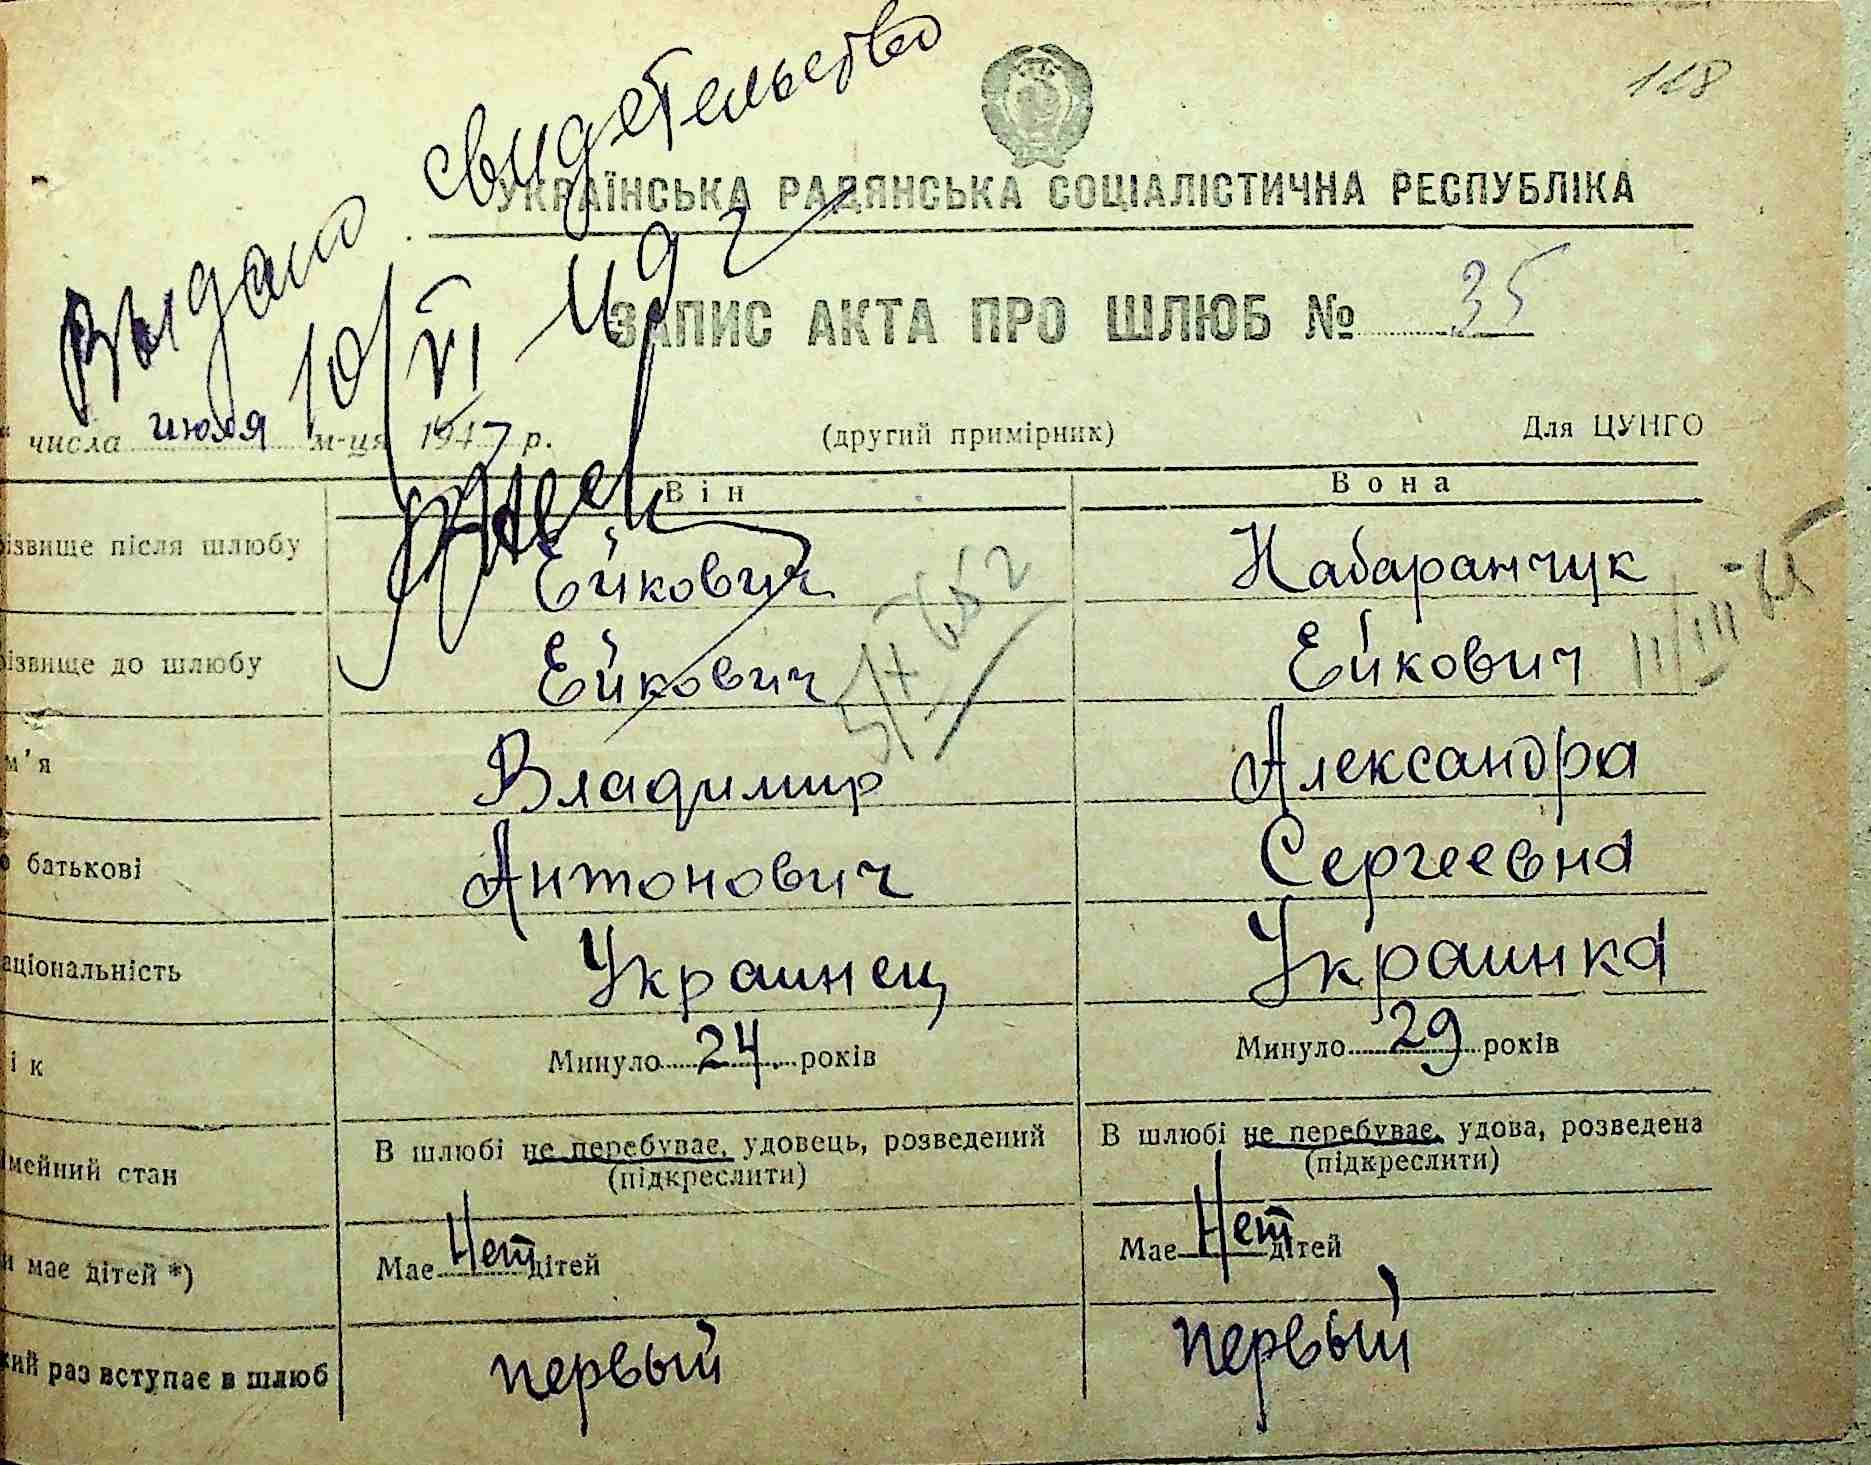 118
Выдано свидетельство
10/VI 49 г
УКРАЇНСЬКА РАДЯНСЬКА СОЦІАЛІСТИЧНА РЕСПУБЛІКА
ЗАПИС АКТА ПРО ШЛЮБ № 35
числа июля м-ця 1947 р. (другий примірник) Для ЦУНГО
Він Вона
ізвище після шлюбу Ейкович Набаранчук
ізвище до шлюбу Ейкович Ейкович
м'я Владимир Александра
о батькові Антонович Сергеевна
аціональність Украинец Украинка
ік Минуло 24 років Минуло 29 років
імейний стан В шлюбі не перебуває, удовець, розведений В шлюбі не перебуває, удова, розведена
(підкреслити) (підкреслити)
и має дітей *) Має Нет дітей Має Нет дітей
кий раз вступає в шлюб первый первый